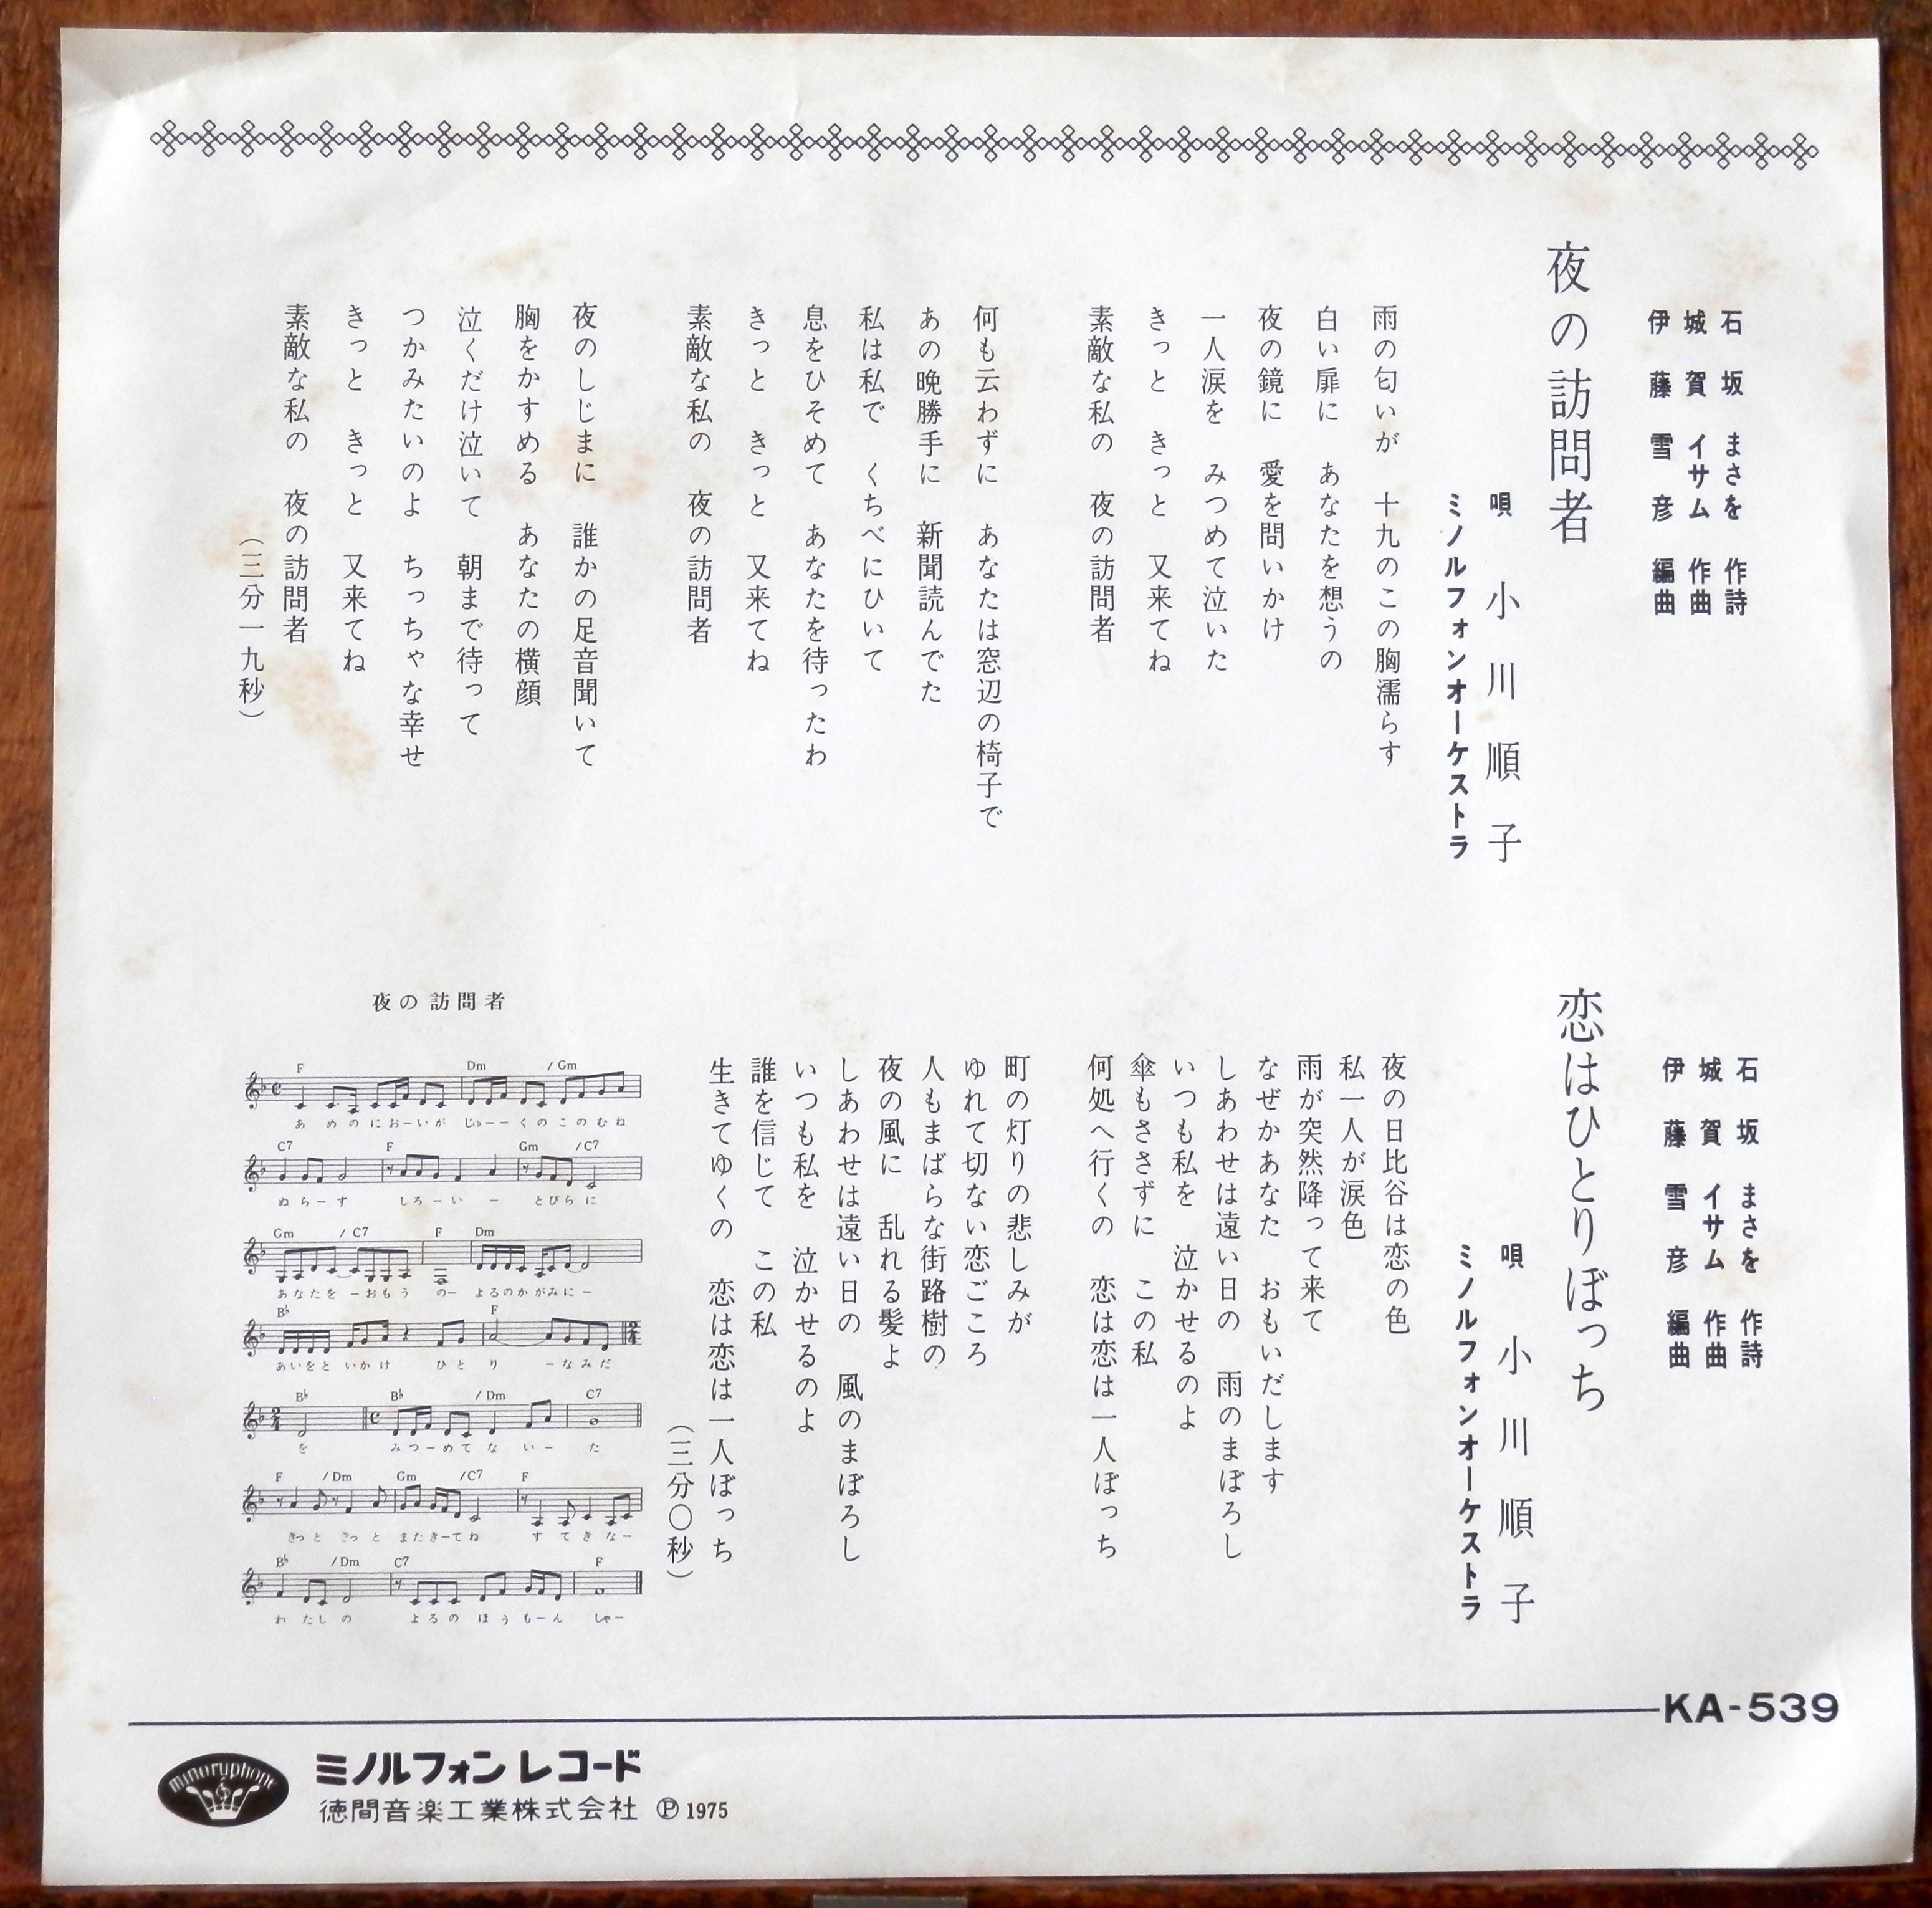 石坂まさを 作詩
城賀イサム 作曲
伊藤雪彦 編曲
夜の訪問者
唄 小川順子
ミノルフォンオーケストラ
雨の匂いが 十九のこの胸濡らす
白い扉に あなたを想うの
夜の鏡に 愛を問いかけ
一人涙を みつめて泣いた
きっと きっと 又来てね
素敵な私の 夜の訪問者
何も云わずに あなたは窓辺の椅子で
あの晩勝手に 新聞読んでた
私は私で くちべにひいて
息をひそめて あなたを待ったわ
きっと きっと 又来てね
素敵な私の 夜の訪問者
夜のしじまに 誰かの足音聞いて
胸をかすめる あなたの横顔
泣くだけ泣いて 朝まで待って
つかみたいのよ ちっちゃな幸せ
きっと きっと 又来てね
素敵な私の 夜の訪問者
(三分一九秒)
石坂まさを 作詩
城賀イサム 作曲
伊藤雪彦 編曲
恋はひとりぼっち
唄 小川順子
ミノルフォンオーケストラ
夜の日比谷は恋の色
私一人が涙色
雨が突然降って来て
なぜかあなた おもいだします
しあわせは遠い日の 雨のまぼろし
いつも私を 泣かせるのよ
傘もささずに この私
何処へ行くの 恋は恋は一人ぼっち
町の灯りの悲しみが
ゆれて切ない恋ごころ
人もまばらな街路樹の
夜の風に 乱れる髪よ
しあわせは遠い日の 風のまぼろし
いつも私を 泣かせるのよ
誰を信じて この私
生きてゆくの 恋は恋は一人ぼっち
(三分〇秒)
夜の訪問者
F Dm / Gm
あ めのにおーいが じゅーーくのこのむね
C7 F Gm /C7
ぬらーす しろーいー とびらに
Gm / C7 F Dm
あなたをーおもう のー よるのかがみにー
B♭ F
あいをといかけ ひとり ーなみだ
B♭ B♭ / Dm C7
を みつーめてな いー た
F / Dm Gm /C7 F
きっと きっと またきーてね すてきなー
B♭ / Dm C7 F
わたしの よるの ほうもーん しゃー
KA-539
minoruphone
ミノルフォンレコード
徳間音楽工業株式会社 Ⓟ 1975